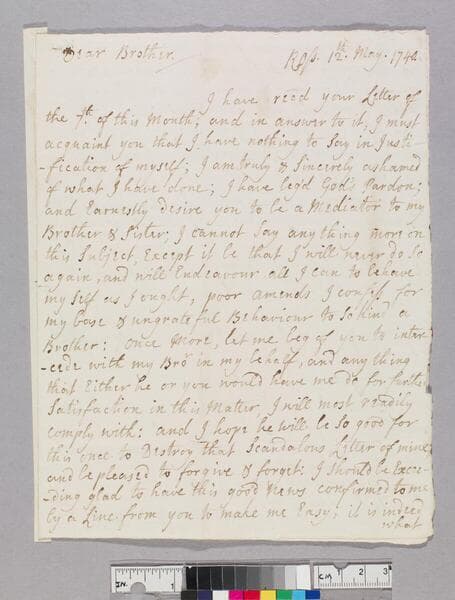 Dear Brother.
Ross. 12th. May. 1742
I have read your Letter of
the 7th. of this Month; and in answer to it, I must
acquaint you that I have nothing to Say in Justi-
-fication of myself; I am truly & Sincerely ashamed
of what I have done; I have beg'd God's Pardon;
and Earnestly desire you to be a Mediator to my
Brother & Sister; I cannot Say any thing more on
this Subject, Except it be that I will never do So
again, and will Endeavour all I can to behave
my Self as I ought, poor amends I confess for
my base & ungrateful Behaviour to So kind a
Brother: once More, let me beg of you to inter-
-cede with my Bror. in my behalf, and any thing
that Either he or you would have me do for further
Satisfaction in this Matter, I will most readily
comply with: and I hope he will be So good for
this once to Destroy that Scandalous Letter of mine
and be pleased to forgive & forget: I Should be Excee-
-ding glad to have this good News confirmed to me
by a Line from you to make me Easy; it is indeed
what
IN. 1
CM 1 2 3